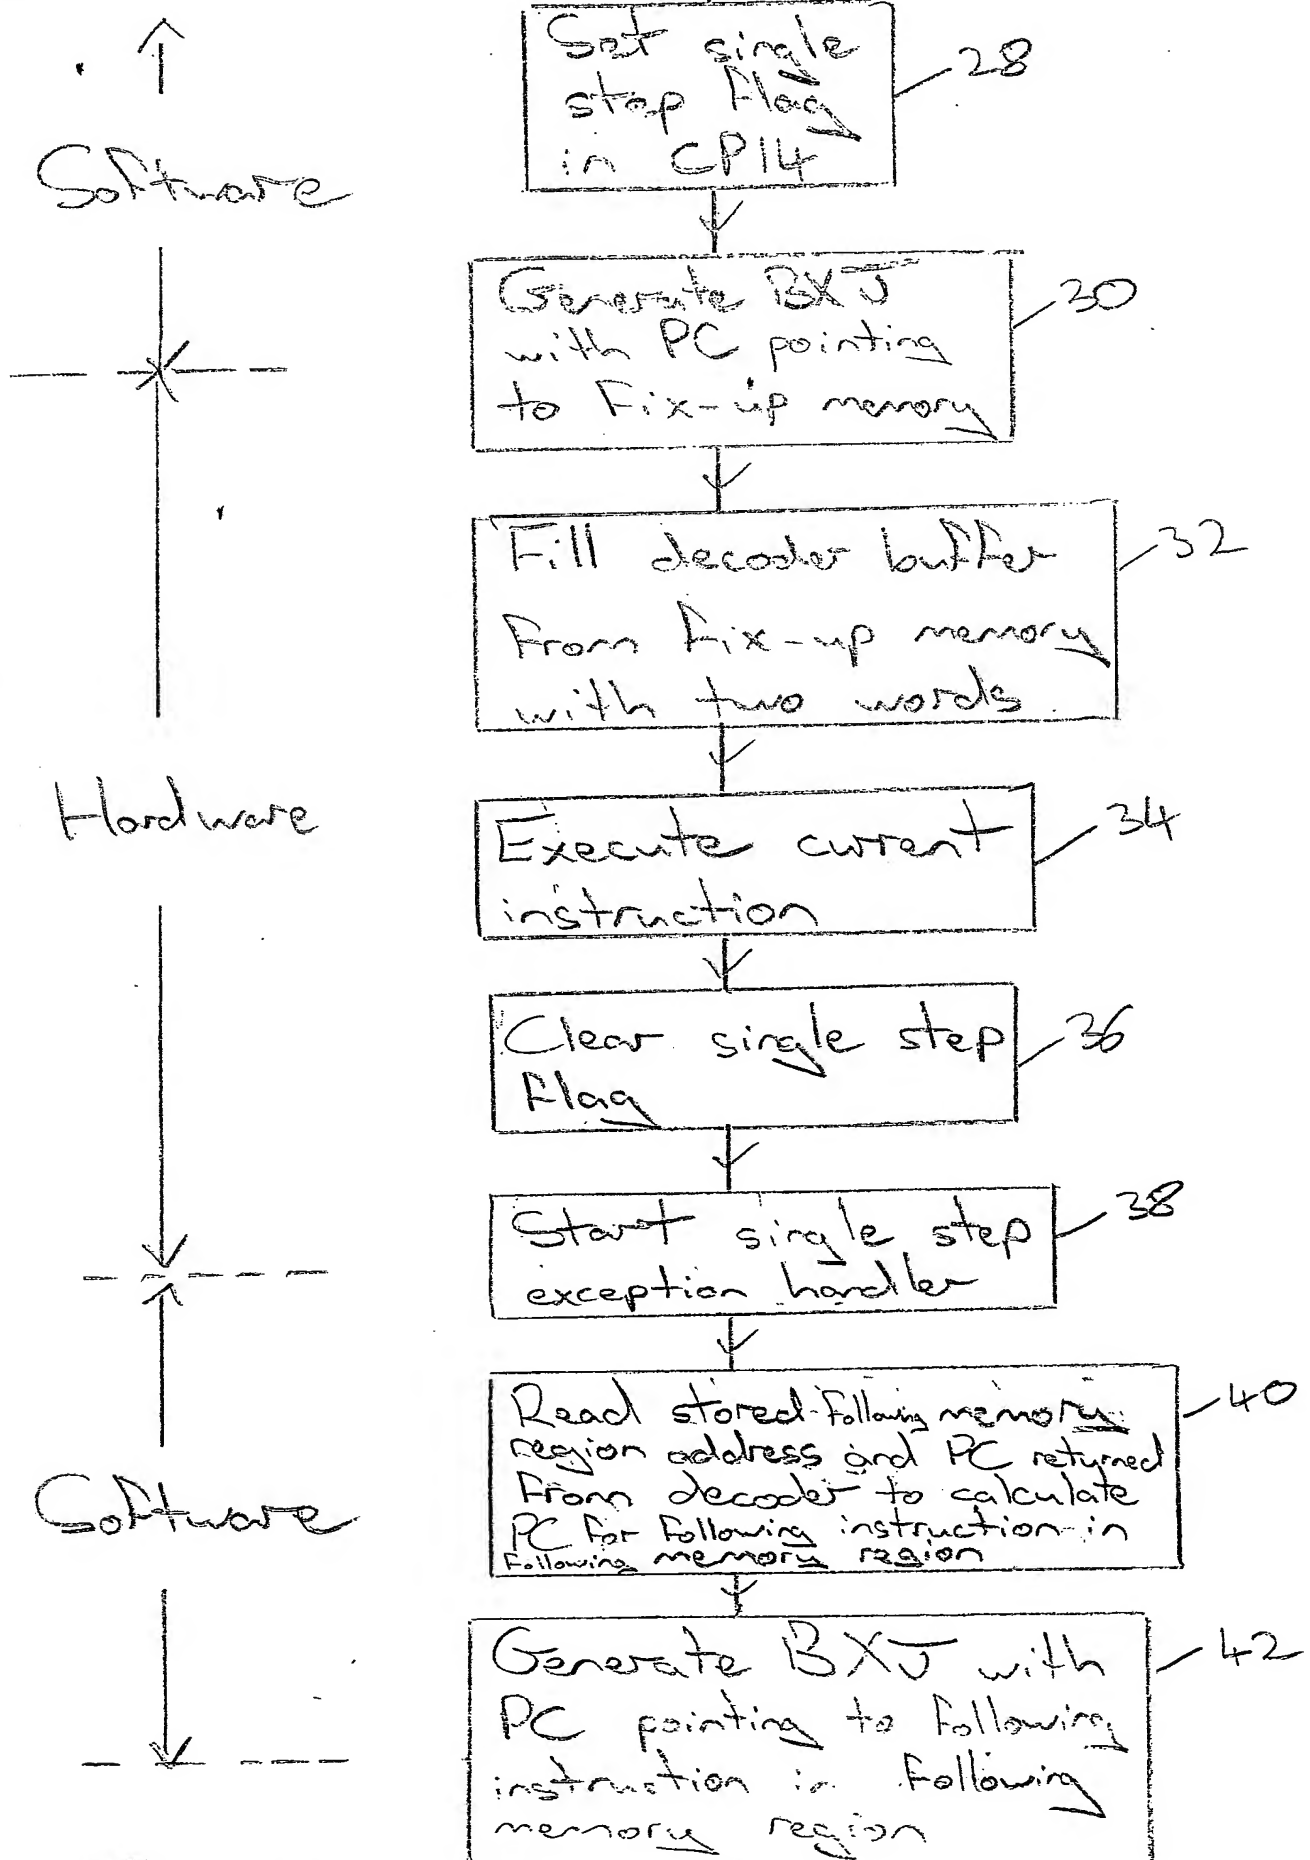 Set single
step flag
in CP14
28
Software
Generate BXJ
with PC pointing
to fix-up memory
30
Fill decoder buffer
from fix-up memory
with two words
32
Hardware
Execute current
instruction
34
Clear single step
flag
36
Start single step
exception handler
38
Read stored following memory
region address and PC returned
from decoder to calculate
PC for following instruction in
following memory region
40
Software
Generate BXJ with
PC pointing to following
instruction in following
memory region
42